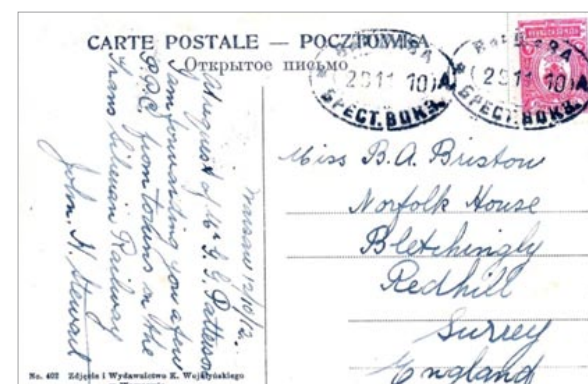 CARTE POSTALE — POCZTÓWKA
Открытое письмо
ВАРШАВА
29 11 10 А
БРЕСТ. ВОКЗ.
29 11 10 А
БРЕСТ. ВОКЗ.
Warsaw 12/10/12.
At request of Mr G. Patterson
I am forwarding you a few
P.P.C. from towns on the
Trans Siberian Railway
John. H. Stewart
Miss B.A. Bristow
Norfolk House
Bletchingly
Redhill
Surrey
England
No. 402 Zdjęcie i Wydawnictwo K. Wojutyńskiego